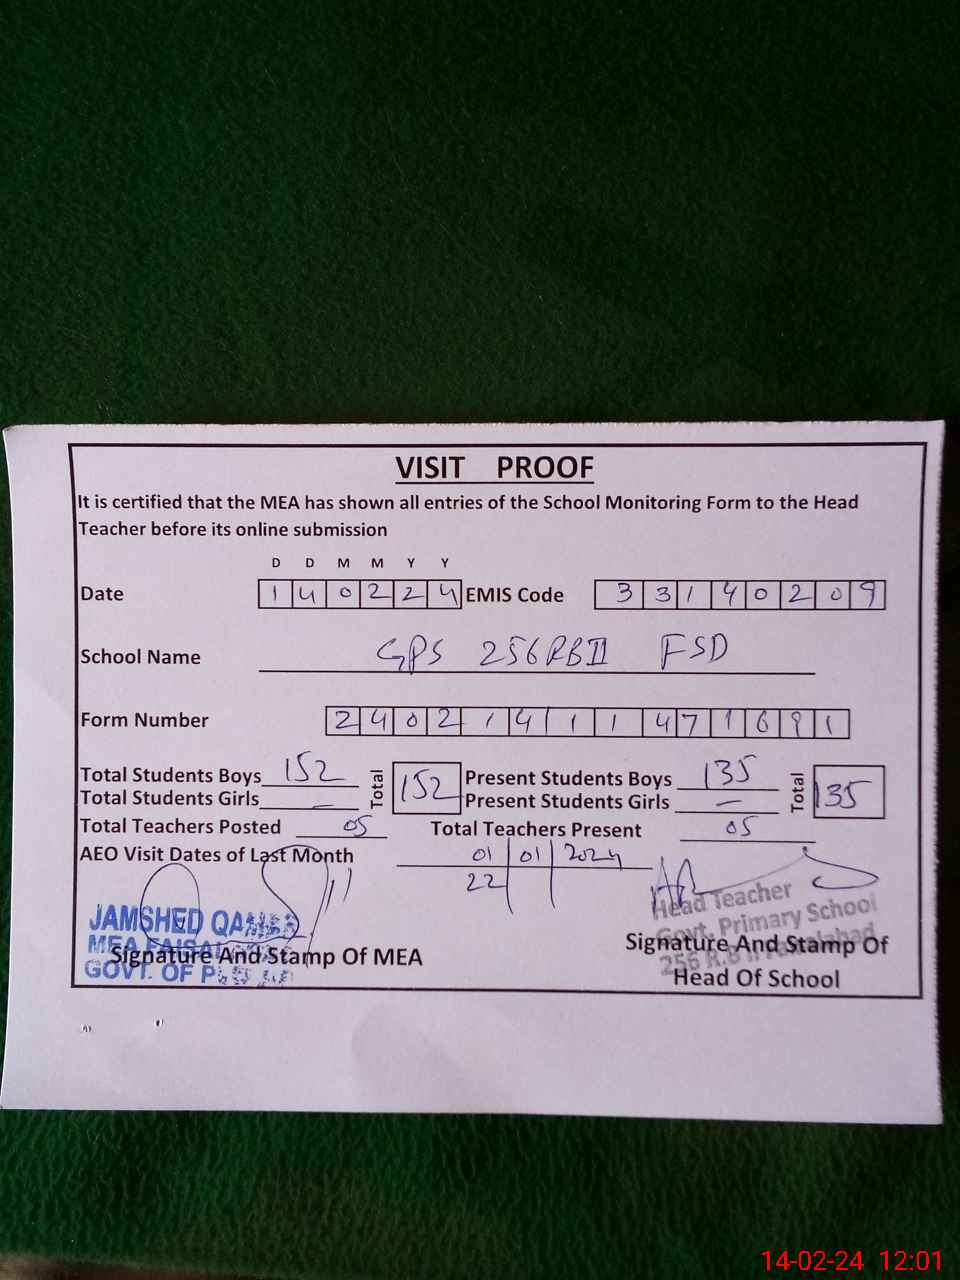 VISIT PROOF
It is certified that the MEA has shown all entries of the School Monitoring Form to the Head
Teacher before its online submission
D D M M Y Y
Date 1 4 0 2 2 4 EMIS Code 3 3 1 4 0 2 0 9
School Name GPS 256RBII FSD
Form Number 2 4 0 2 1 4 1 1 4 7 1 6 9 1
Total Students Boys 152 Total 152 Present Students Boys 135 Total 135
Total Students Girls — Present Students Girls —
Total Teachers Posted 05 Total Teachers Present 05
AEO Visit Dates of Last Month 01 | 01 | 2024
22
JAMSHED
MEA
GOVT. OF
Signature And Stamp Of MEA
Head Teacher
Govt. Primary School
256 R.B II Faisalabad
Signature And Stamp Of
Head Of School
14-02-24 12:01